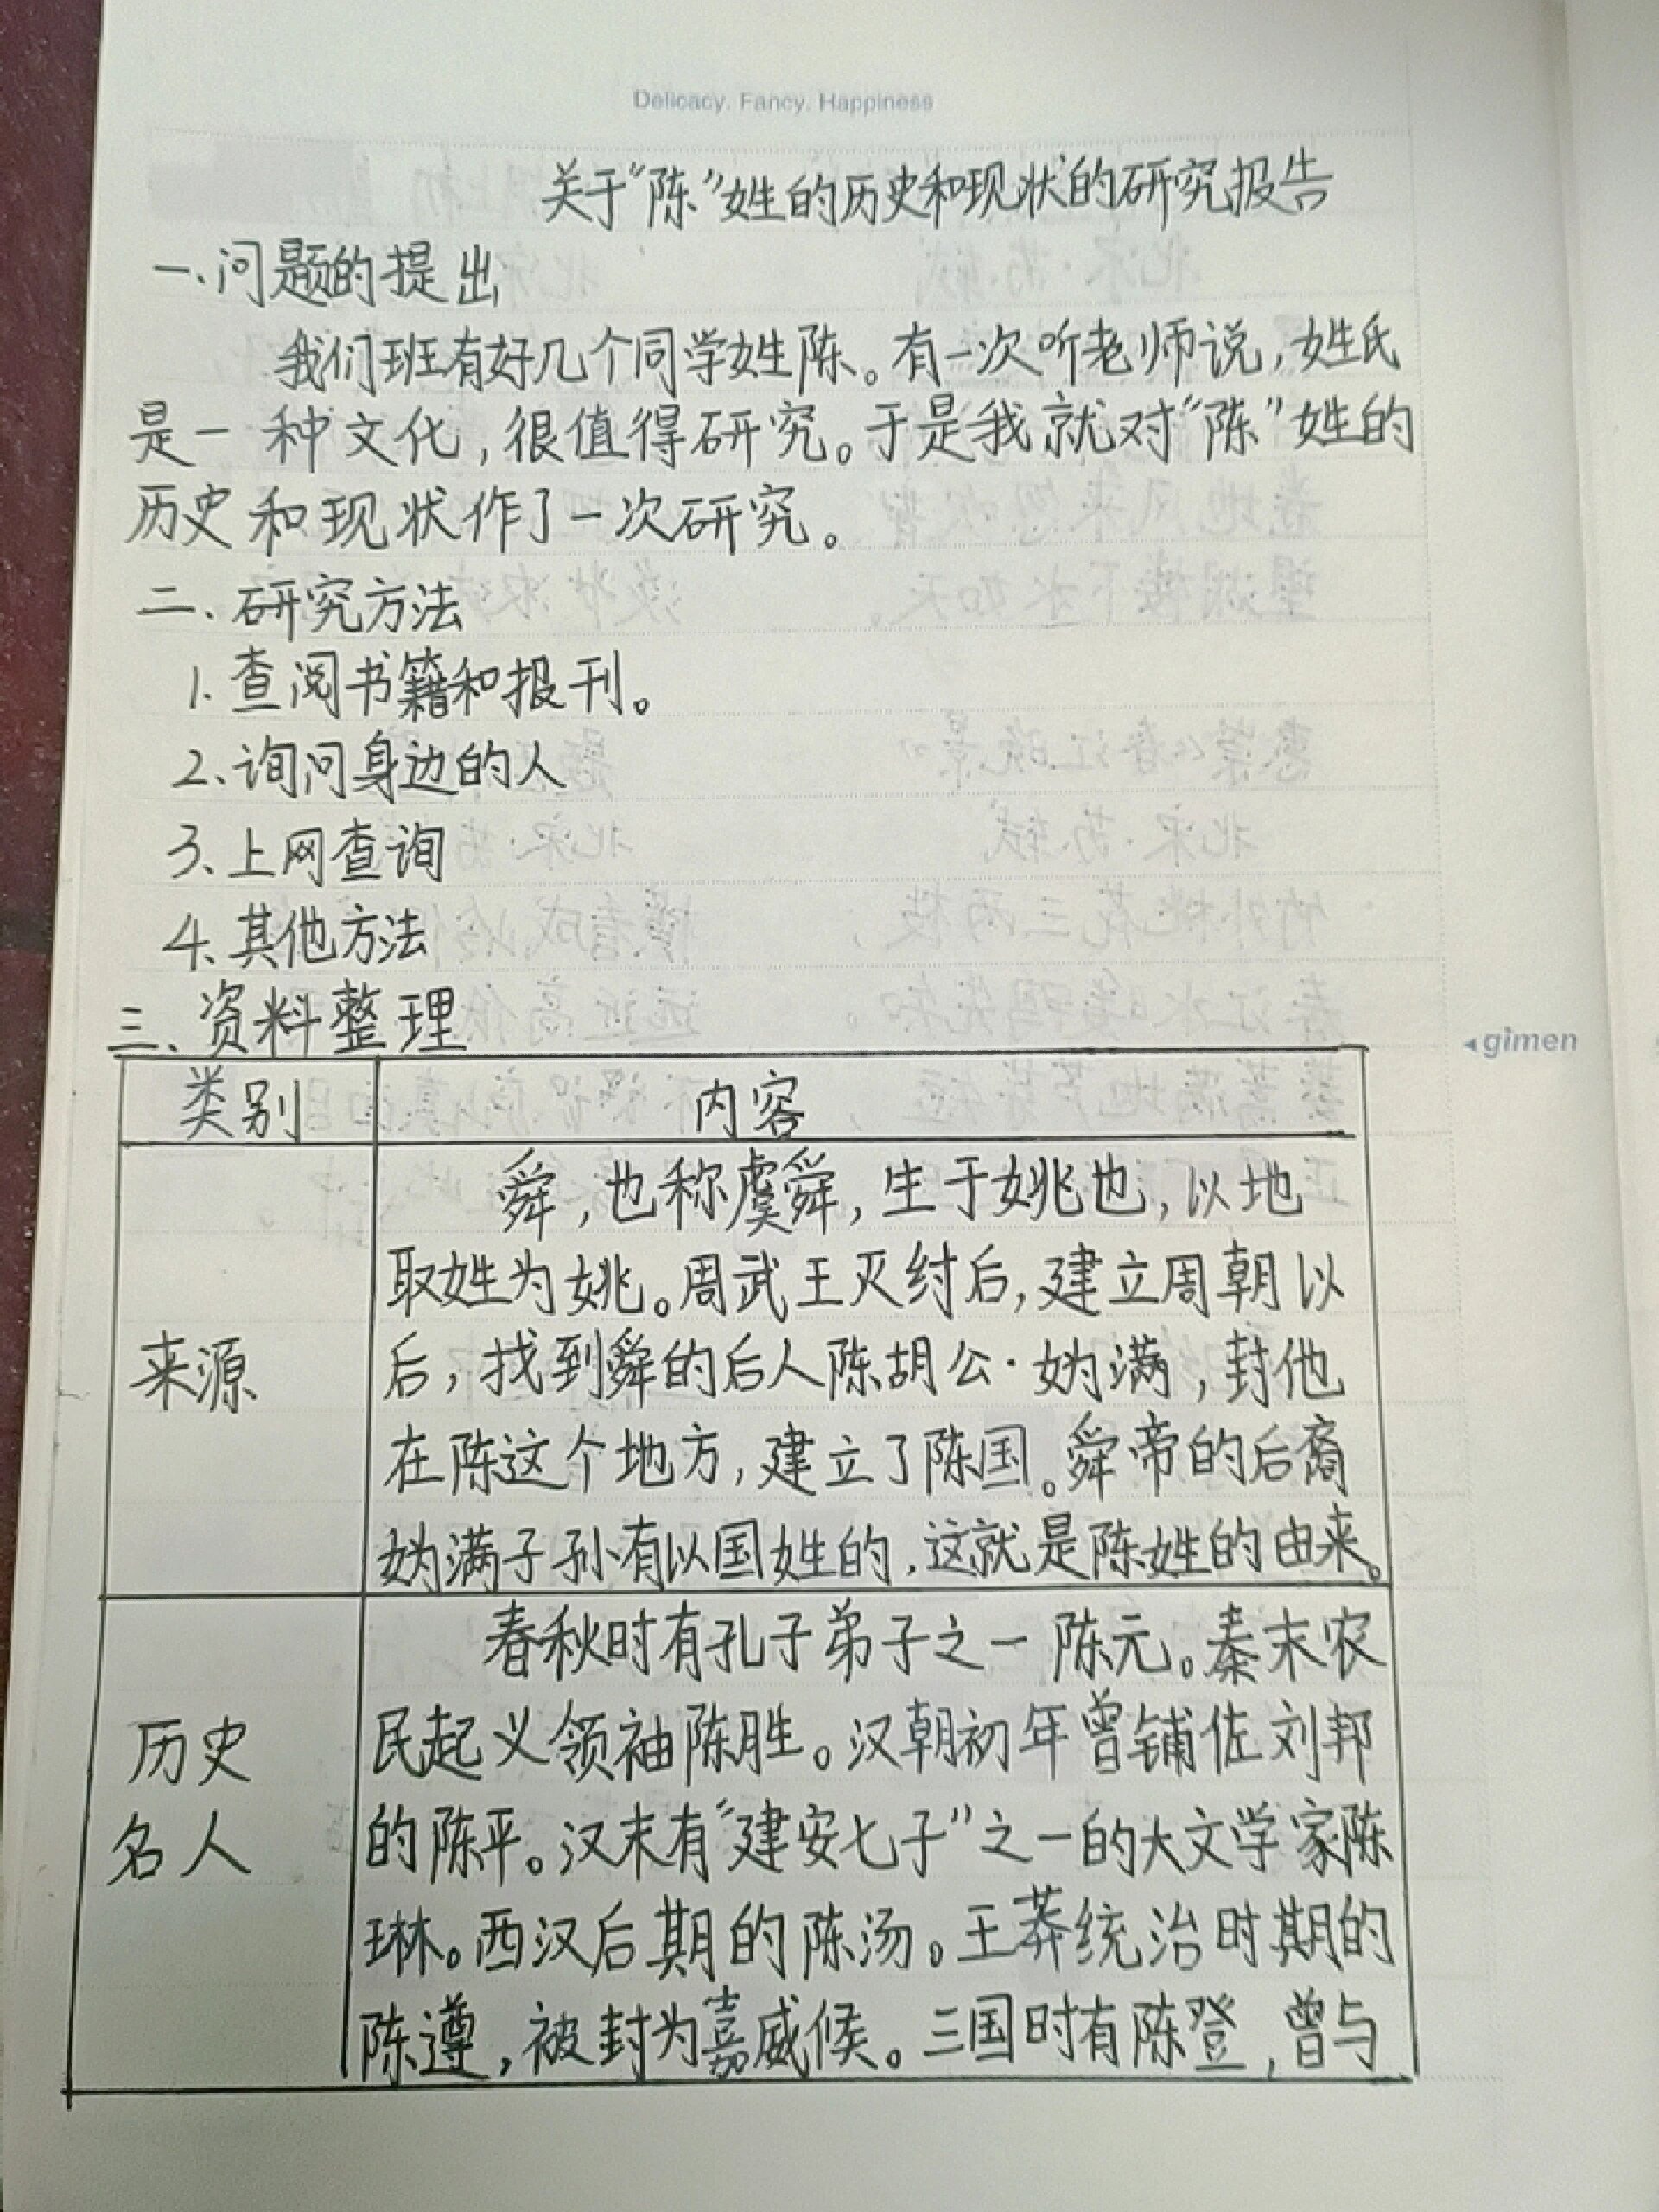 Delicacy. Fancy. Happiness
关于“陈”姓的历史和现状的研究报告
一、问题的提出
我们班有好几个同学姓陈。有一次听老师说,姓氏
是一种文化,很值得研究。于是我就对“陈”姓的
历史和现状作了一次研究。
二、研究方法
1.查阅书籍和报刊。
2、询问身边的人
3、上网查询
4、其他方法
三、资料整理
gimen
类别 内容
舜,也称虞舜,生于姚也,以地
取姓为姚。周武王灭纣后,建立周朝以
来源 后,找到舜的后人陈胡公·妫满,封他
在陈这个地方,建立了陈国。舜帝的后裔
妫满子孙有以国姓的,这就是陈姓的由来。
春秋时有孔子弟子之一陈元。秦末农
历史 民起义领袖陈胜。汉朝初年曾铺佐刘邦
名人 的陈平。汉末有“建安七子”之一的大文学家陈
琳。西汉后期的陈汤。王莽统治时期的
陈遵,被封为嘉威候。三国时有陈登,曾与